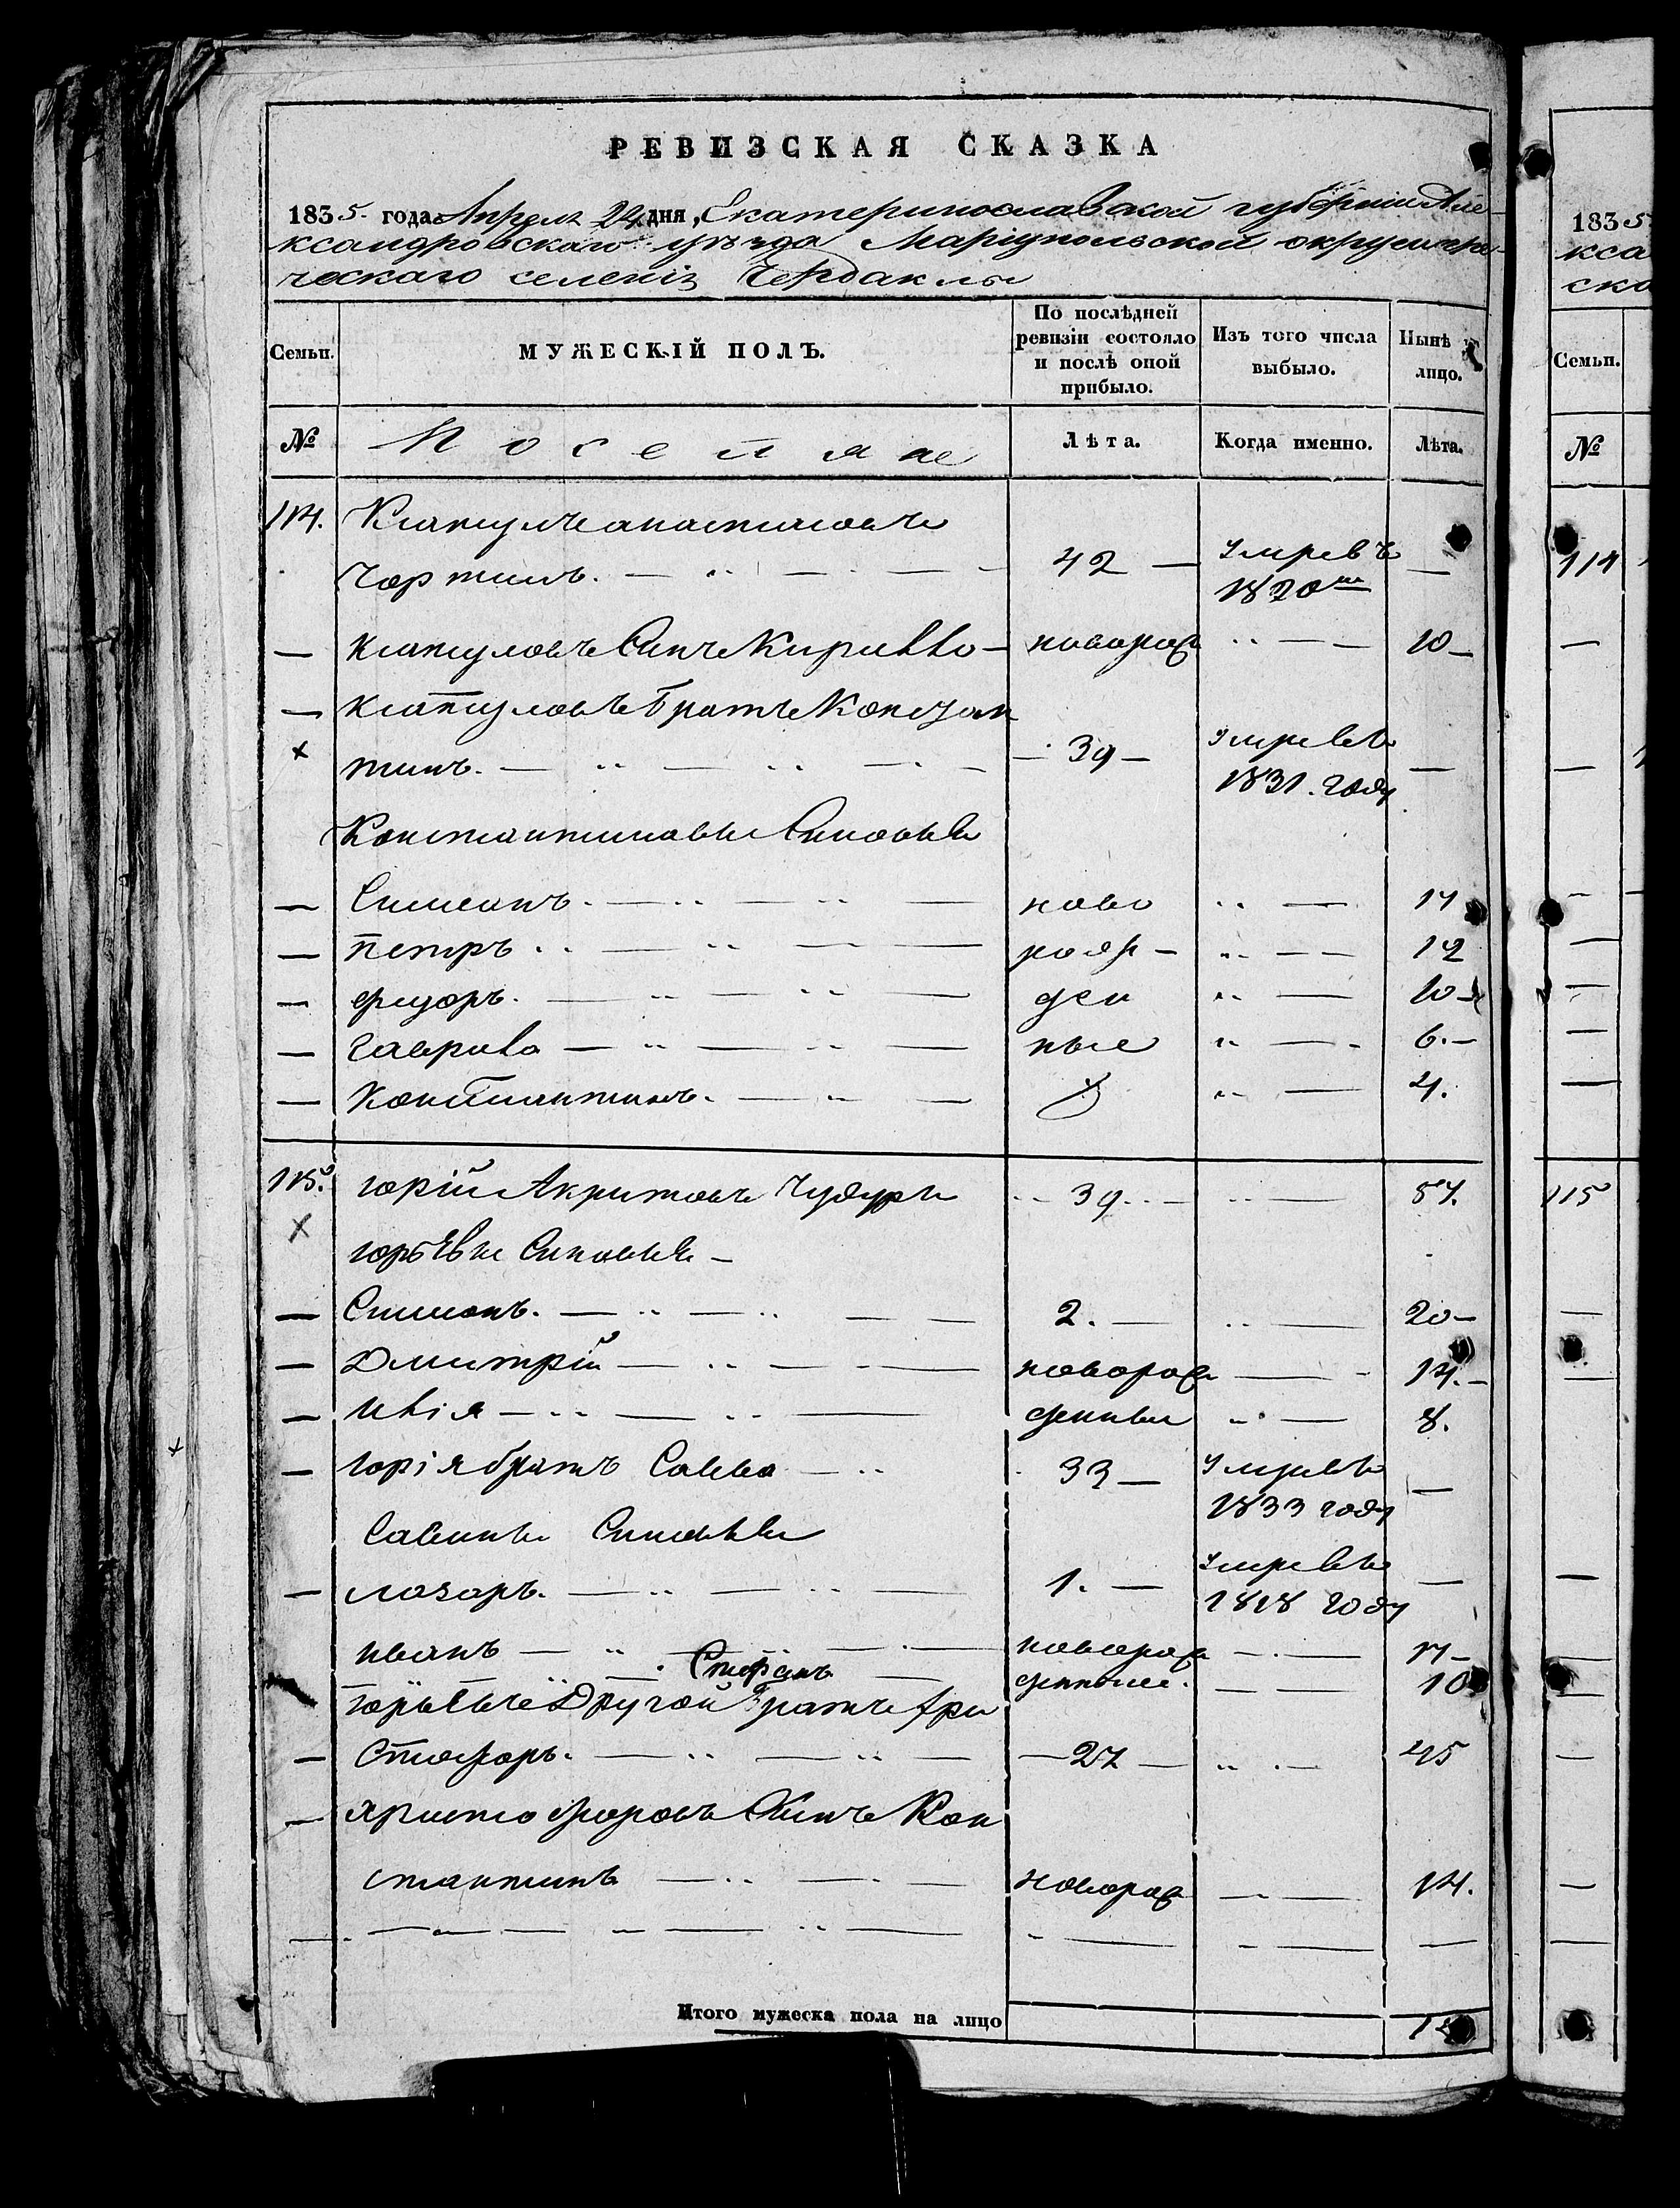 РЕВИЗСКАЯ СКАЗКА
1835 года Апреля 24 дня, Екатеринославской губернiи Але-
ксандровскаго уѣзда Марiупольской округи гре-
ческаго селенiя Чердаклы
Семьи. МУЖЕСКIЙ ПОЛЪ. По послѣдней ревизiи состояло и послѣ оной прибыло. Изъ того числа выбыло. Нынѣ на лицо.
№ Поселяне Лѣта. Когда именно. Лѣта.
114.
42 — умревъ
1820
— Сынъ Кирилло — новорож 10 —
— Братъ Констан
× тинъ. — 39 — умревъ —
1831. году
Константиновы Сыновья
— Симеонъ. — ново — 14
— Петръ — рож — 12
— Федоръ. — ден — 10 —
— Гаврило — ные — 6. —
— Константинъ. — 4.
115. Юрiй Акритовъ Чубукъ 39. — 57.
× Юрьевы Сыновья —
— Симионъ. — 2. — 20 —
— Дмитрiй — новорож — 14. —
— Илiя — денные — 8.
— Юрiя братъ Савва — 33 — умревъ —
1833 году
Савины Сыновья
— Лазарь. — 1. — умревъ —
1818 году
Иванъ — новорож — 17 —
Стефанъ — денные. — 10
Юрьевъ Другой Братъ Хри
— стофоръ. — 27 — 45
— Христофоровъ Сынъ Кон
стантинъ — новорож — 14.
Итого мужеска пола на лицо
1835
ксан
ска
Семьи.
№
114
115